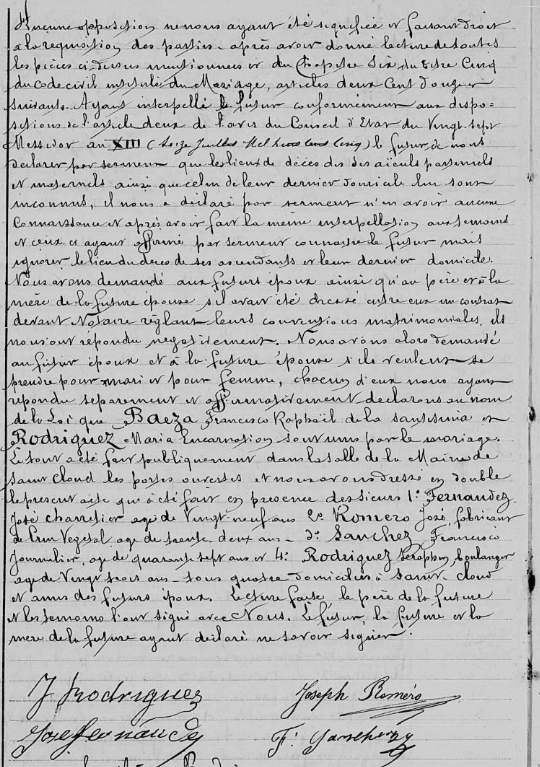 Aucune opposition ne nous ayant été signifiée et faisant droit
à la requisition des parties après avoir donné lecture de toutes
les pièces ci-dessus mentionnées et du Chapitre Six du titre Cinq
du code civil intitulé du Mariage, articles deux Cent douze et
suivants. Ayant interpellé le futur conformément aux dispo-
sitions de l'article deux de l'avis du Conseil d'Etat du Vingt sept
Messidor an XIII (Seize Juillet Mil huit cent Cinq) le futur de nous
déclarer par serment que les lieux de décès des ses aïeuls paternels
et maternels ainsi que celui de leur dernier domicile lui sont
inconnus, il nous a déclaré par serment n'en avoir aucune
Connaissance et après avoir fait la même interpellation aux temoins
et ceux ci ayant affirmé par serment connaitre le futur mais
ignorer le lieu du décès de ses ascendants et leur dernier domicile.
Nous avons demandé aux futurs époux ainsi qu'au père et à la
mère de la future épouse s'il avait été dressé entre eux un contrat
devant Notaire réglant leurs conventions matrimoniales, ils
nous ont répondu negativement. Nous avons alors demandé
au futur époux et à la future épouse s'ils veulent se
prendre pour mari et pour femme, chacun d'eux nous ayant
répondu séparement et affirmativement declarons au nom
de la Loi que Baeza Francisco Raphaël de la et
Rodriguez Maria Encarnation sont unis par le mariage.
Le tout a été fait publiquement dans la salle de la Mairie de
Saint Cloud les portes ouvertes et nous avons dressé en double
le present acte qui a été fait en presence des sieurs 1° Fernandez
José charretier age de Vingt neuf ans 2° Romero José, fabricant
de Crin Vegetal age de trente deux ans - 3° Sanchez Francisco
Journalier, age de quarante sept ans et 4° Rodriguez Seraphin, boulanger
age de Vingt trois ans - tous quatre domiciliés à Saint Cloud
et amis des futurs époux. Lecture faite le père de la future
et les temoins l'ont signé avec Nous. Le futur, la future et la
mère de la future ayant déclaré ne savoir signer.
J Rodriguez
Joseph Roméro
José Fernandez
F°